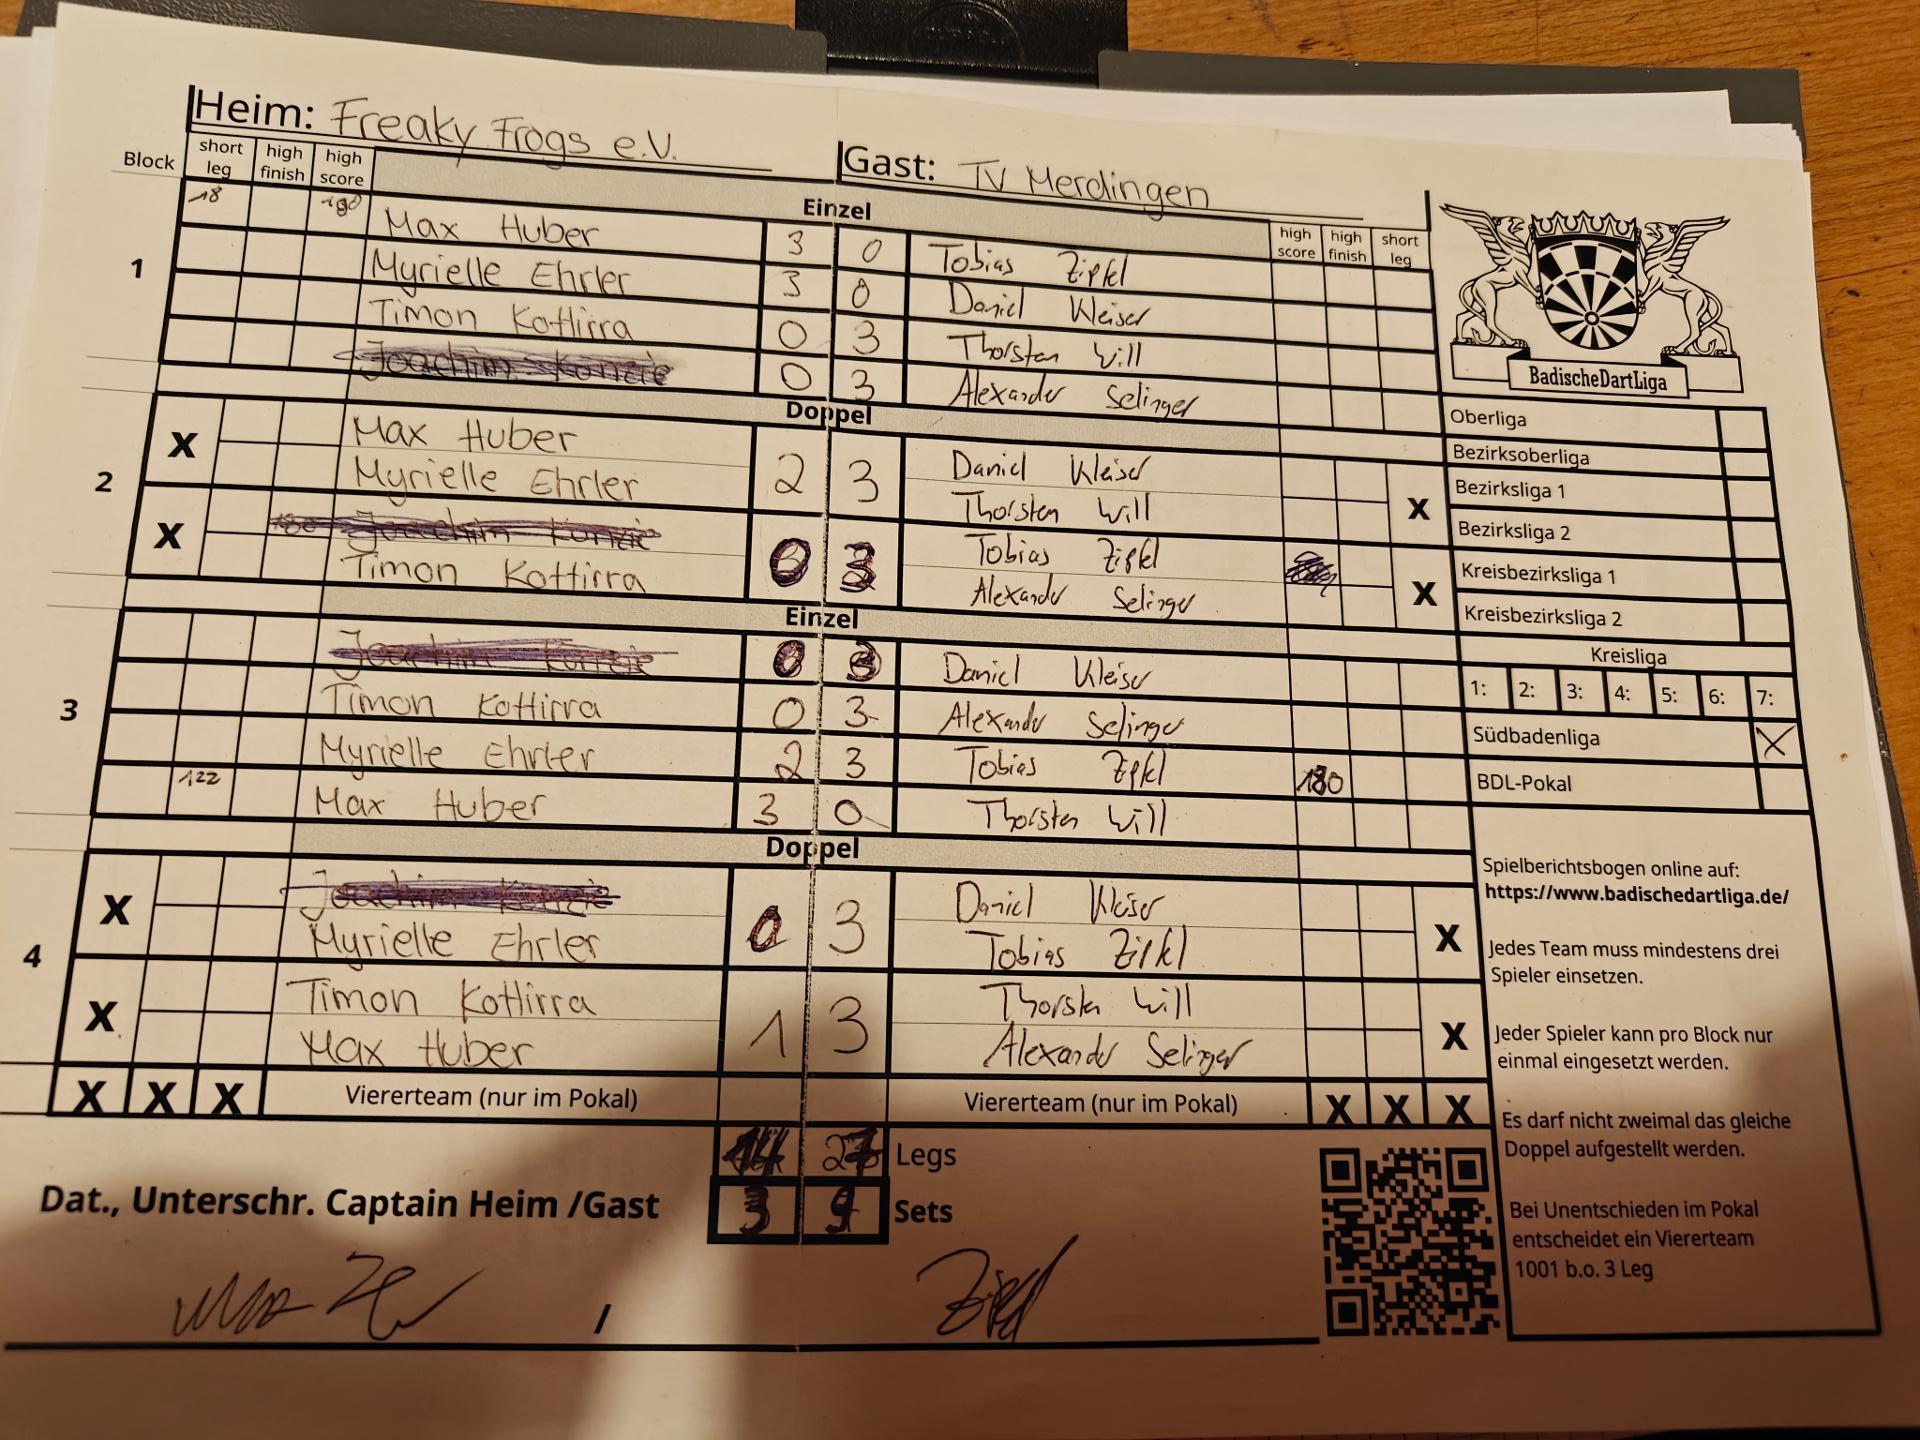 Heim: Freaky Frogs e.V.
Gast: TV Merdingen
Block short leg high finish high score
Einzel
high score high finish short leg
1
18 180 Max Huber 3 0 Tobias Zipfel
Myrielle Ehrler 3 0 Daniel Kleiser
Timon Kottirra 0 3 Thorsten Will
Joachim 0 3 Alexander Selinger
Doppel
2
X Max Huber 2 3 Daniel Kleiser
Myrielle Ehrler Thorsten Will X
X 180 Joachim 0 3 Tobias Zipfel
Timon Kottirra Alexander Selinger X
Einzel
3
Joachim 0 3 Daniel Kleiser
Timon Kottirra 0 3 Alexander Selinger
Myrielle Ehrler 2 3 Tobias Zipfel 180
122 Max Huber 3 0 Thorsten Will
Doppel
4
X Joachim 0 3 Daniel Kleiser X
Myrielle Ehrler Tobias Zipfel
X Timon Kottirra 1 3 Thorsten Will X
Max Huber Alexander Selinger
X X X Viererteam (nur im Pokal) Viererteam (nur im Pokal) X X X
14 27 Legs
Dat., Unterschr. Captain Heim /Gast 3 9 Sets
/ Zipfel
BadischeDartLiga
Oberliga
Bezirksoberliga
Bezirksliga 1
Bezirksliga 2
Kreisbezirksliga 1
Kreisbezirksliga 2
Kreisliga
1: 2: 3: 4: 5: 6: 7:
Südbadenliga X
BDL-Pokal
Spielberichtsbogen online auf:
https://www.badischedartliga.de/
Jedes Team muss mindestens drei
Spieler einsetzen.
Jeder Spieler kann pro Block nur
einmal eingesetzt werden.
Es darf nicht zweimal das gleiche
Doppel aufgestellt werden.
Bei Unentschieden im Pokal
entscheidet ein Viererteam
1001 b.o. 3 Leg